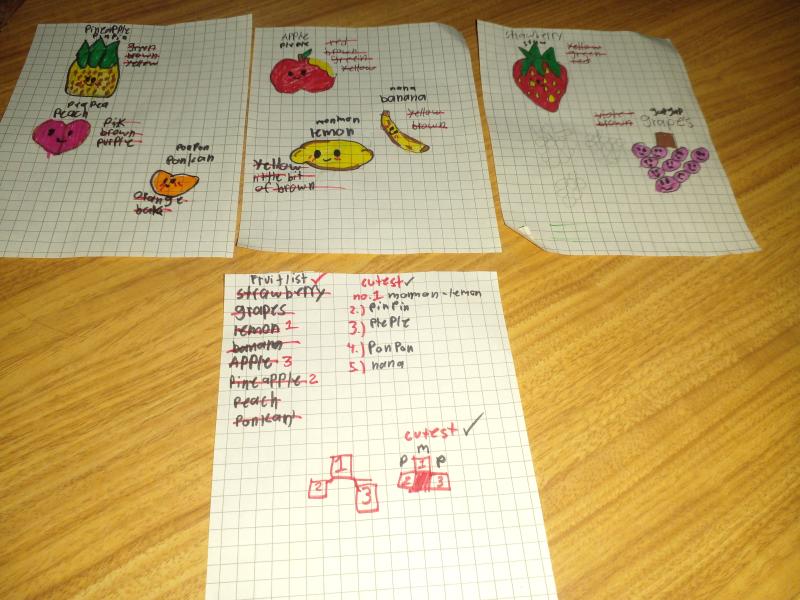 pineapple
pinpin
green
brown
yellow
peapea
peach
pink
brown
purple
ponpon
ponkan
orange
APPLE
plepie
red
brown
green
yellow
nana
banana
yellow
brown
monmon
lemon
yellow
little bit
of brown
strawberry
yellow
green
red
brown
grapes
Fruit list ✓
strawberry
grapes
lemon 1
banana
APPLE 3
Pineapple 2
Peach
Ponkan
cutest ✓
no.1 monmon-lemon
2.) PinPin
3.) PlePle
4.) PonPon
5.) nana
1
2
3
cutest ✓
m
P 1 P
2 3